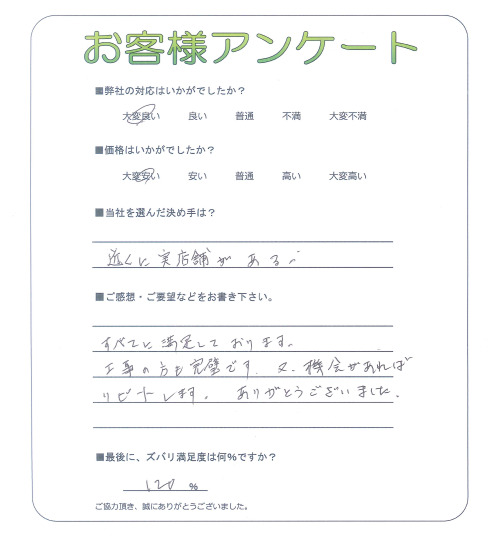 お客様アンケート
■弊社の対応はいかがでしたか？
大変良い 良い 普通 不満 大変不満
■価格はいかがでしたか？
大変安い 安い 普通 高い 大変高い
■当社を選んだ決め手は？
近くに実店舗がある
■ご感想・ご要望などをお書き下さい。
すべてに満足しております。
工事の方も完璧です。又、機会があれば
リピートします。ありがとうございました。
■最後に、ズバリ満足度は何％ですか？
120 ％
ご協力頂き、誠にありがとうございました。